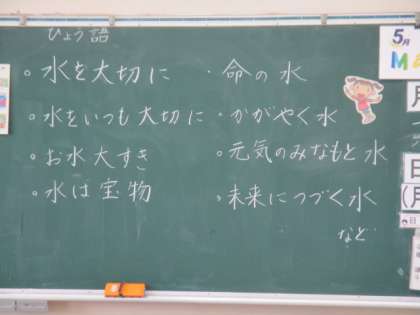 ひょう語
・水を大切に
・水をいつも大切に
・お水大すき
・水は宝物
・命の水
・かがやく水
・元気のみなもと水
・未来につづく水
など
5月
MA
月
日
(月
日